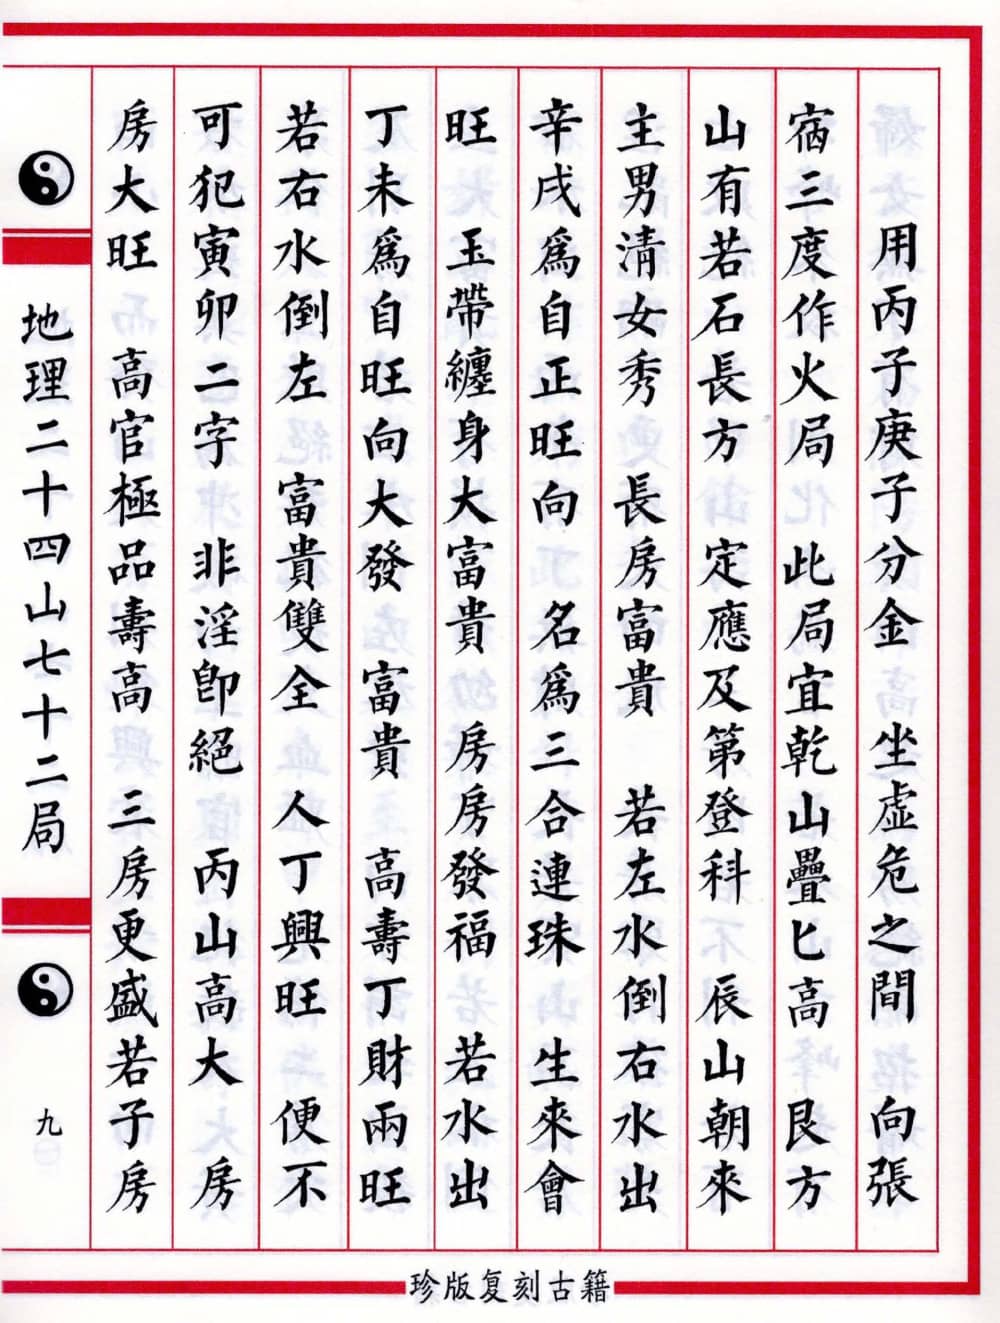 用丙子庚子分金 坐虛危之間 向張
宿三度作火局 此局宜乾山疊匕高 艮方
山有若石長方 定應及第登科 辰山朝來
主男清女秀 長房富貴 若左水倒右水出
辛戌為自正旺向 名為三合連珠 生來會
旺 玉帶纏身大富貴 房房發福 若水出
丁未為自旺向大發 富貴 高壽丁財兩旺
若右水倒左 富貴雙全 人丁興旺 便不
可犯寅卯二字 非淫卽絕 丙山高大 房
房大旺 高官極品壽高 三房更盛若子房
地理二十四山七十二局
九
珍版复刻古籍